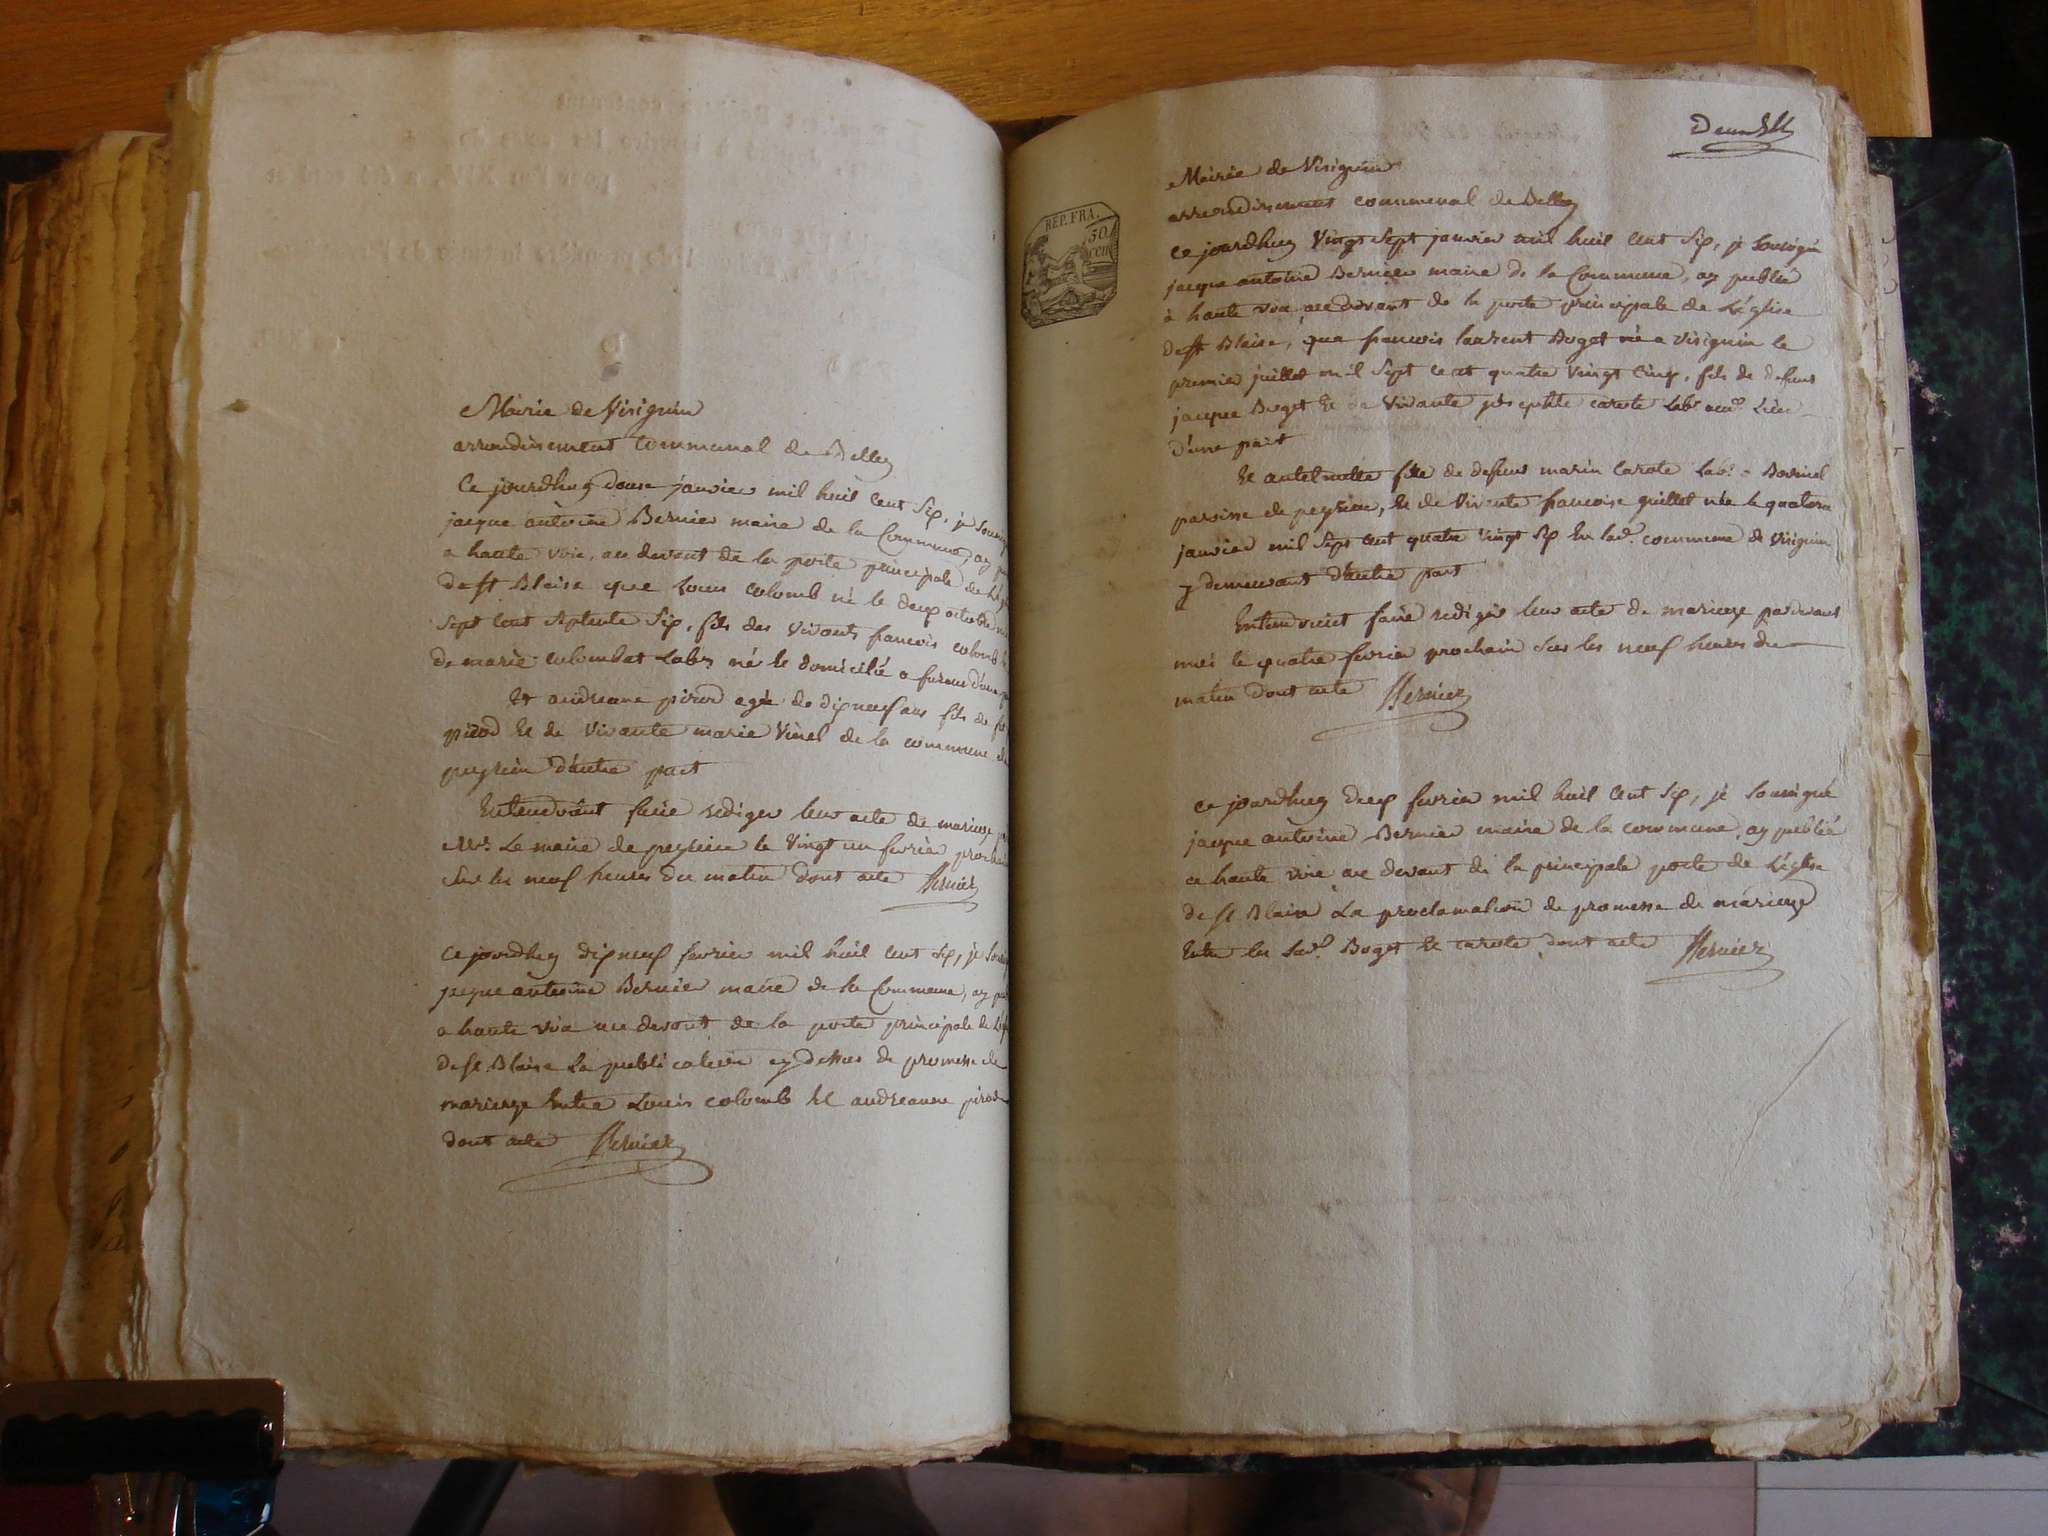 Mairie de Virignin
arrondissement Communal de Belley
Ce jourdhuy douse janvier mil huit Cent Six, je Soussig
jacque antoine Bernier maire de la Commune, ay pu
a haute voix, au devant de la porte principale de L'Eg
de st Blaise que Louis Colomb né le deux octobre mi
Sept Cent Septente Six, fils des vivants francois colomb &
de marie colombat Labrs né & domicilié a d'une p
Et audreanne pirod agée de dix neuf ans fils de
pirod Et de vivante marie Vinel de la commune de
peyrieu d'autre part
Entendroint faire rediger leur acte de mariage p
Mr. Le maire de peyrieu le vingt un fevrier prochain
Sur les neuf heures du matin dont acte Bernier
ce jourdhuy dix neuf fevrier mil huit Cent Six, je Sous
jacque antoine Bernier maire de la Commune, ay pu
a haute voix au devant de la porte principale de L'eg
de st Blaise La publication cy dessus de promesse de
mariage Entre Louis colomb Et audreanne pirod
dont acte Bernier
REP. FRA.
50
cen
Deux
Mairie de Virignin
arrondissement communal de Belley
ce jourdhuy vingt Sept janvier mil huit Cent Six, je Soussigné
jacque antoine Bernier maire de la Commune, ay publié
à haute voix au devant de la porte principale de L'église
de st Blaise, que francois laurent Boget né a virignin le
premier juillet mil Sept cent quatre vingt Cinq, fils de defunt
jacque Boget Et de vivante carote Labr
d'une part
Et antelmette fille de defunt marin Carote Labr a
paroisse de peyrieu, Et de vivante francoise guillot née le quatorze
janvier mil Sept Cent quatre vingt Six En lade. commune de virignin
y demeurant d'autre part
Entendroint faire rediger leur acte de mariage pardevant
moi le quatre fevrier prochain Sur les neuf heures du
matin dont acte Bernier
ce jourdhuy deux fevrier mil huit Cent Six, je Soussigné
jacque antoine Bernier maire de la commune, ay publié
a haute voix au devant de la principale porte de L'église
de st Blaise La proclamation de promesse de mariage
Entre les Sud. Boget Et carote dont acte Bernier